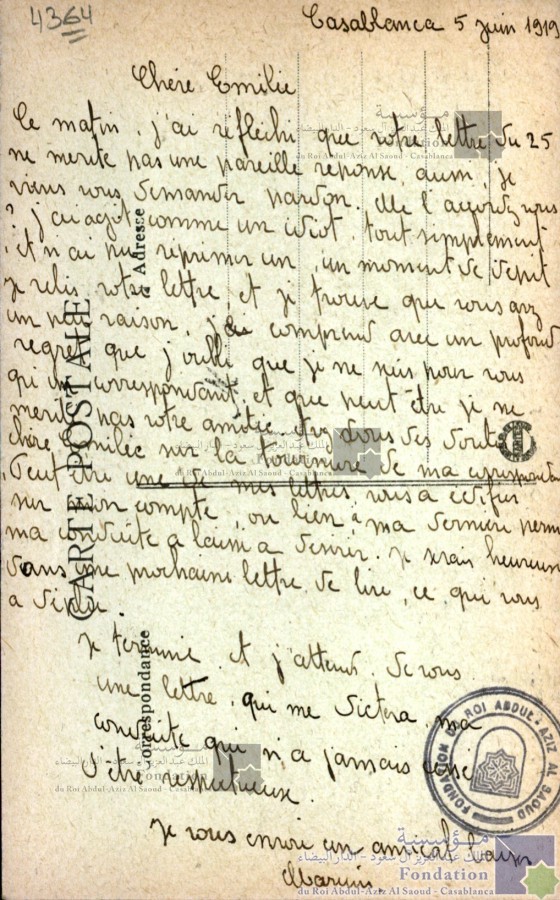 4364
Casablanca 5 juin 1919
Chère Emilie
Ce matin, j'ai réfléchi que votre lettre du 25
ne merite pas une pareille reponse, aussi, je
viens vous demander pardon. Me l'accordez vous
? j'ai agot comme un idiot, tout simplement
et n'ai pu réprimer un, un moment de depit
Je relis votre lettre, et je trouve que vous avez
un peu raison, je comprend avec un profond
regret que j'oublie que je ne suis pour vous
qu'un correspondant, et que peut être je ne
merite pas votre amitié. des doutes
chère Emilie sur la tournure de ma correspondance
Peut être une de mes lettres vous a édifier
sur mon compte, ou bien à ma dernière perm
ma conduite a laissé a désirer. Je serais heureux
dans une prochaine lettre de lire, ce qui vous
a déplu.
Je termine et j'attend de vous
une lettre, qui me dictera ma
conduite qui n'a jamais cessé
d'être respectueuse.
Je vous envoie un amical baiser
CARTE POSTALE
Correspondance
Adresse
مؤسسة
الملك عبد العزيز آل سعود - الدار البيضاء
Fondation
du Roi Abdul-Aziz Al Saoud - Casablanca
FONDATION DU ROI ABDUL-AZIZ AL SAOUD